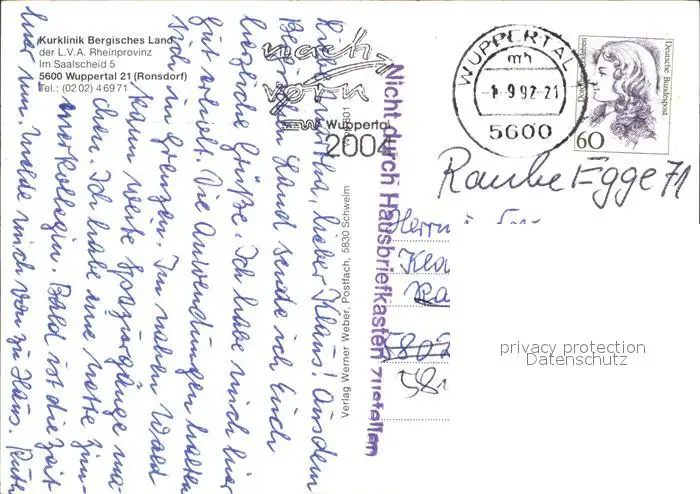 Kurklinik Bergisches Land
der L.V.A. Rheinprovinz
Im Saalscheid 5
5600 Wuppertal 21 (Ronsdorf)
Tel.: (02 02) 4 69 71
nach
vorn
Wuppertal
2004
WUPPERTAL
mh
-1.-9.92-21
5600
Deutsche Bundespost
60
Raube Egge 71
Herrn
Kla
Ra
5802
581
privacy protection
Datenschutz
Nicht durch Hausbriefkasten zustellen
Verlag Werner Weber, Postfach, 5830 Schwelm
lieber Klaus! Aus dem
Bergischen Land sende ich Euch
herzliche Grüße. Ich habe mich hier
gut erholt. Die Anwendungen halten
sich in Grenzen. Im nahen Wald
kann weite Spaziergänge ma-
chen. Ich habe eine nette Zim-
merkollegin. Bald ist die Zeit
und um. Melde mich von zu Haus.